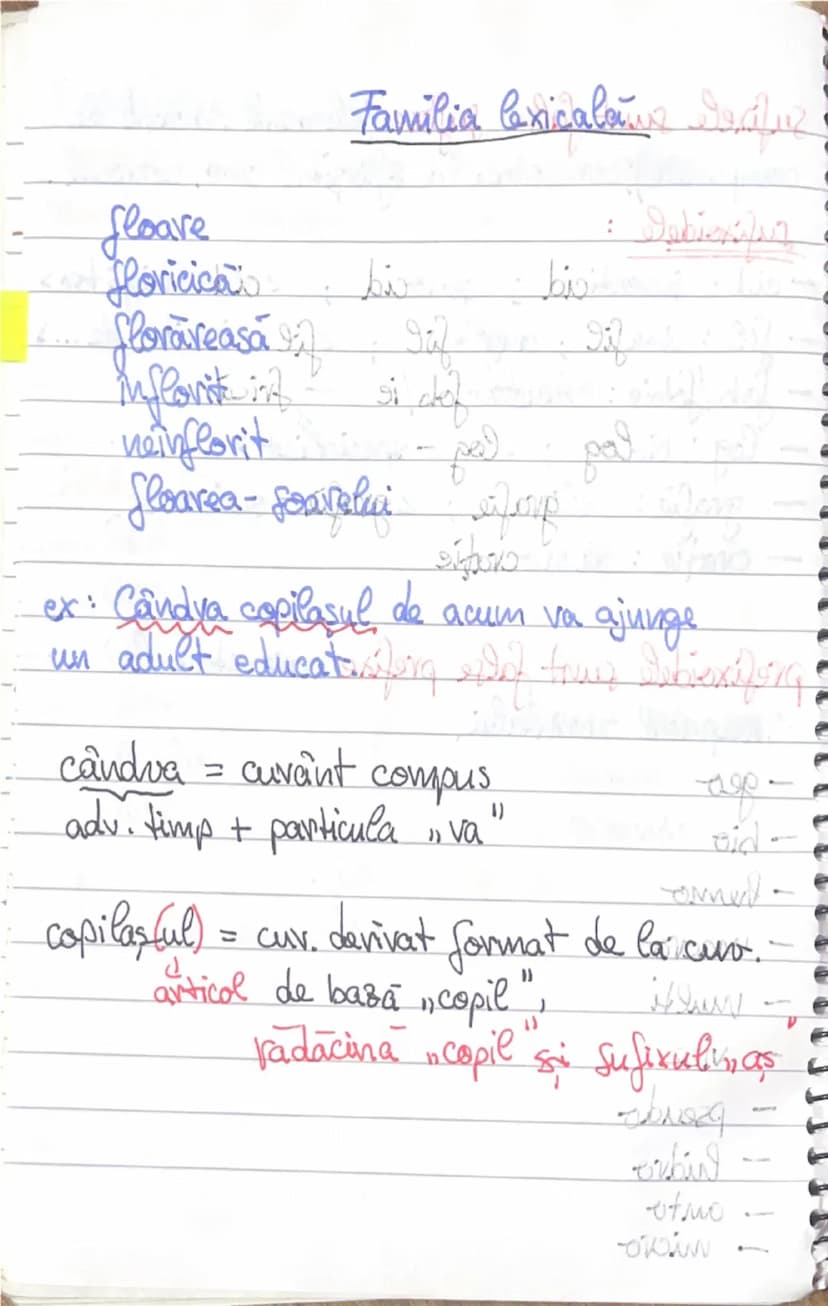 Familia lexicală
floare
floricică
florăreasă
înflorit
neînflorit
floarea-soarelui
ex: Cândva copilașul de acum va ajunge
un adult educat.
cândva = cuvânt compus
adv. timp + particula „va"
copilaș(ul) = cuv. derivat format de la cuv.
articol de bază „copil",
rădăcină „copil" și sufixul „aș"